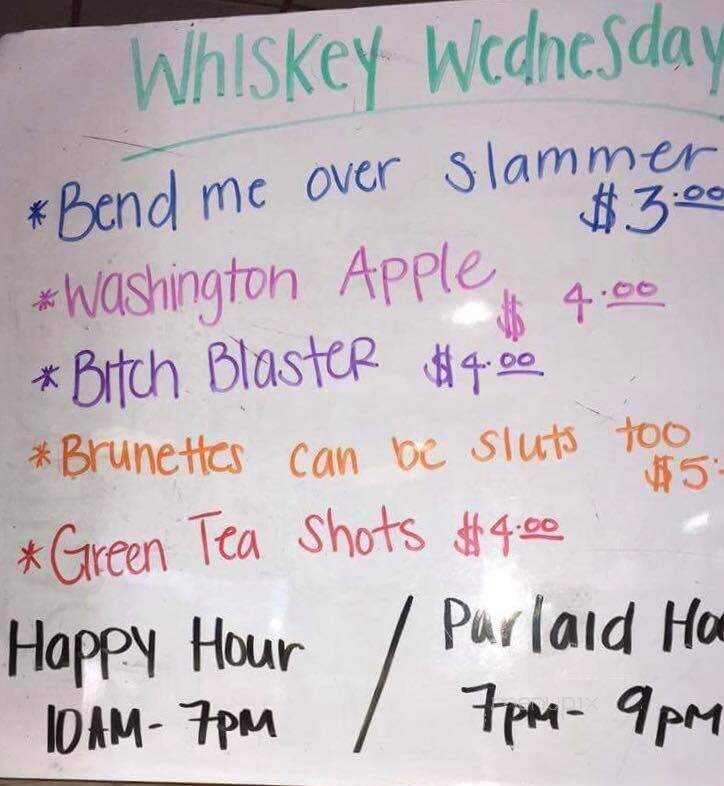 Whiskey Wednesday
*Bend me over slammer
$3.00
*Washington Apple
$ 4.00
*Bitch Blaster $4.00
*Brunettes can be sluts too
$5.
*Green Tea Shots $4.00
Happy Hour / Parlaid
10AM- 7PM 7PM- 9PM